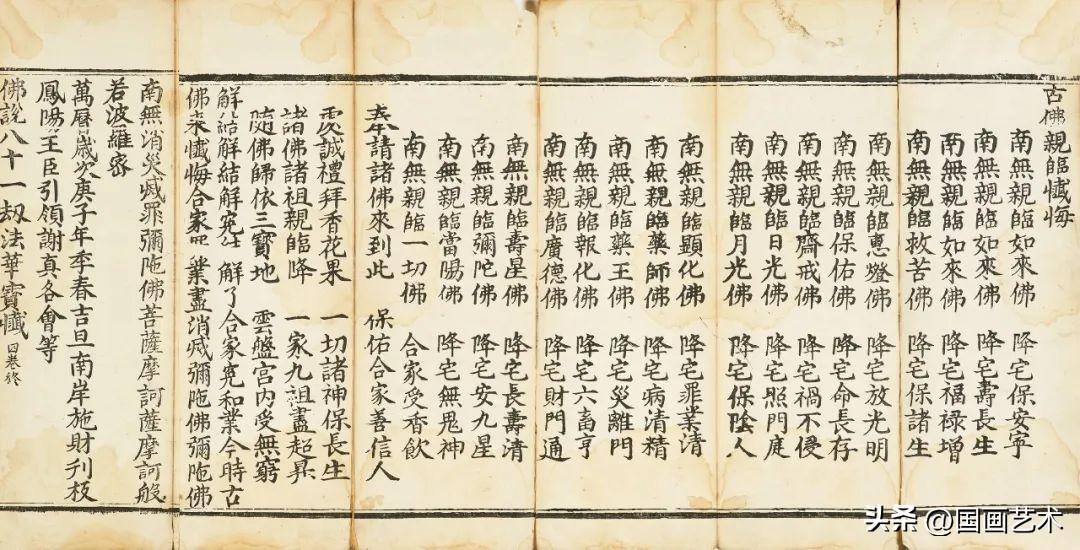 古佛親臨懺悔
南無親臨如來佛 降宅保安寧
南無親臨如來佛 降宅壽長生
南無親臨如來佛 降宅福祿增
南無親臨救苦佛 降宅保諸生
南無親臨惠燈佛 降宅放光明
南無親臨保佑佛 降宅命長存
南無親臨齋戒佛 降宅禍不侵
南無親臨日光佛 降宅照門庭
南無親臨月光佛 降宅保陰人
南無親臨顯化佛 降宅罪業清
南無親臨藥師佛 降宅病清精
南無親臨藥王佛 降宅災離門
南無親臨報化佛 降宅六畜亨
南無親臨廣德佛 降宅財門通
南無親臨壽星佛 降宅長壽清
南無親臨彌陀佛 降宅安九星
南無親臨當陽佛 降宅無鬼神
南無親臨一切佛 合家受香飲
奉請諸佛來到此 保佑合家善信人
虔誠禮拜香花果 一切諸神保長生
諸佛諸祖親臨降 一家九祖盡超昇
隨佛歸依三寶地 雲盤宮內受無窮
解結解結解冤 解了合家冤和業今時古
佛來懺悔合家 業盡消滅彌陁佛彌陁佛
南無消災滅罪彌陁佛菩薩摩訶薩摩訶般
若波羅密
萬曆歲次庚子年季春吉旦南岸施財刊板
鳳陽王臣引領謝真各會等
佛說八十一劫法華寶懺四卷終
头条 @国画艺术